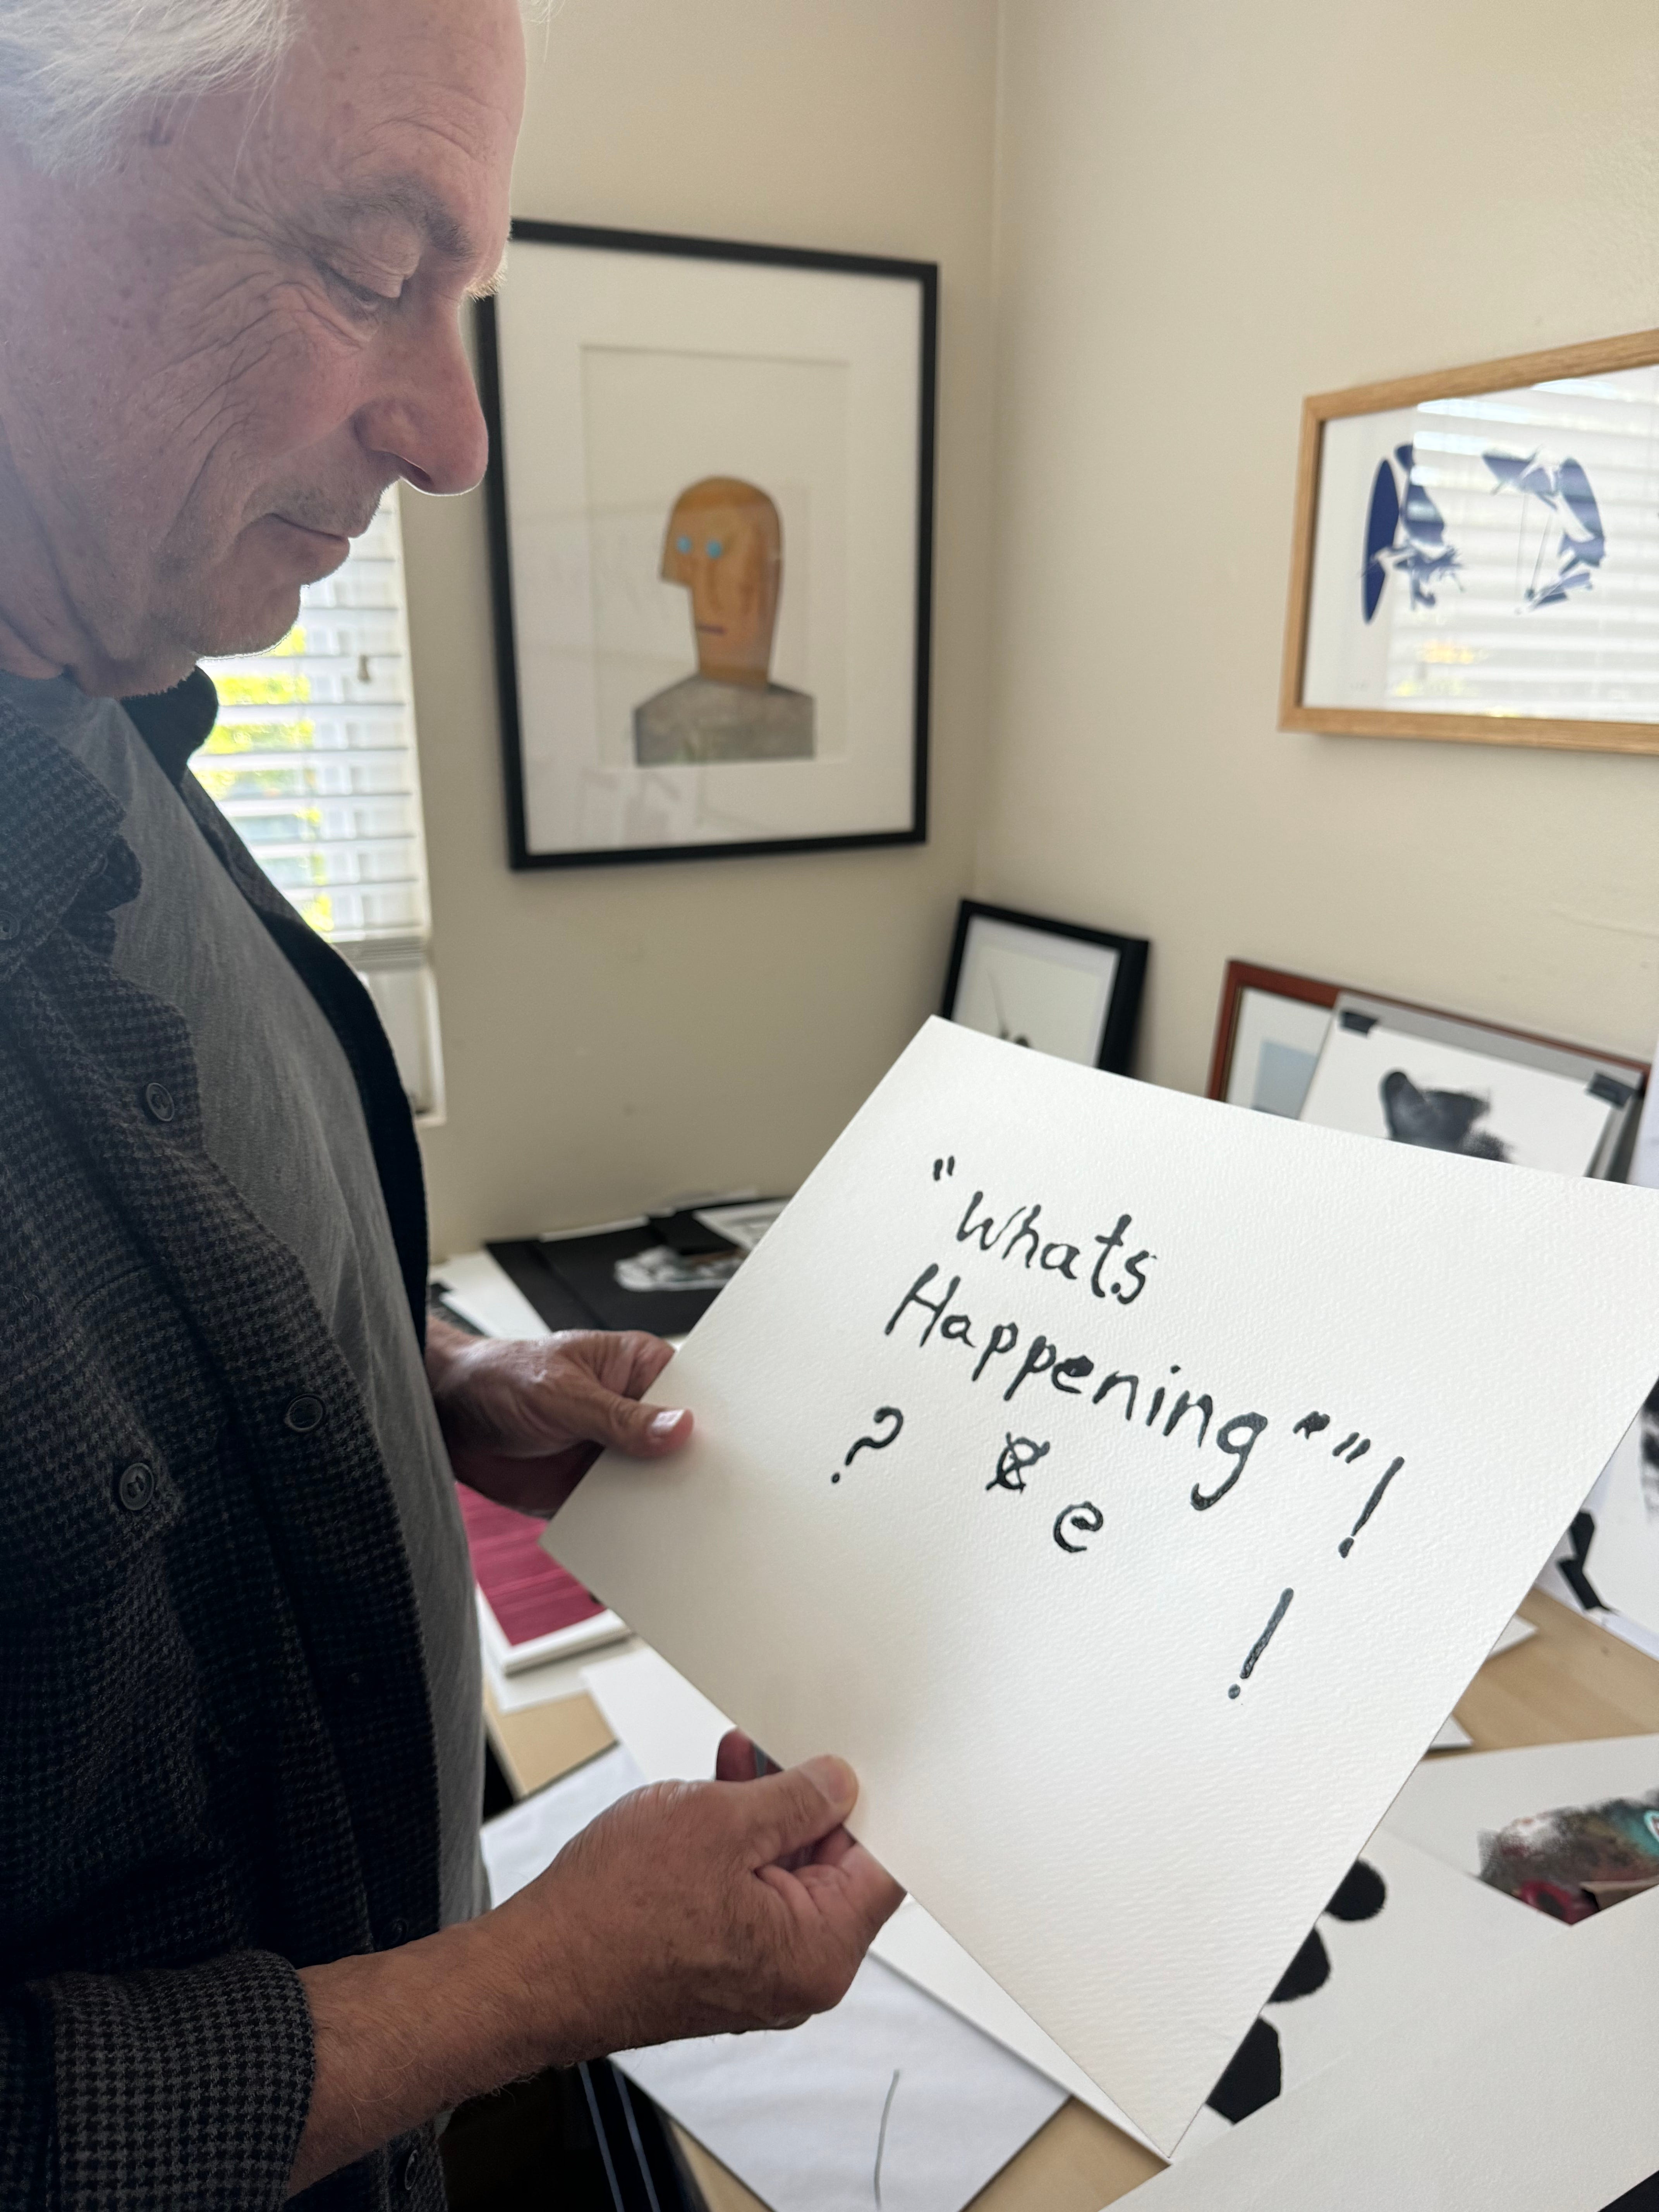 "Whats
Happening""!
? e e
!